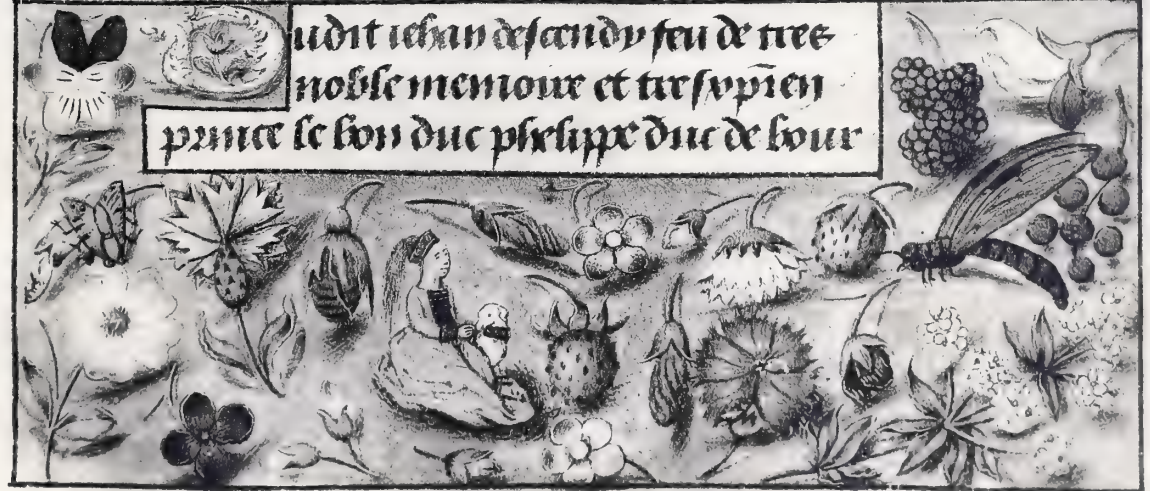 udit iehan descendy feu de tres
noble memoire et tresxp̄ien
prince le bon duc phelippe duc de bour